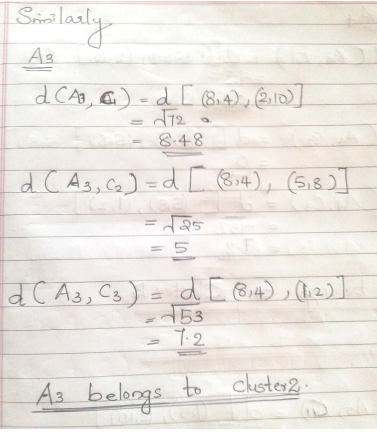 Similarly
A3
d(A3, C1) = d [(8,4), (2,10)]
= √72
= 8.48
d(A3, C2) = d [(8,4), (5,8)]
= √25
= 5
d(A3, C3) = d [(8,4), (1,2)]
= √53
= 7.2
A3 belongs to cluster2.